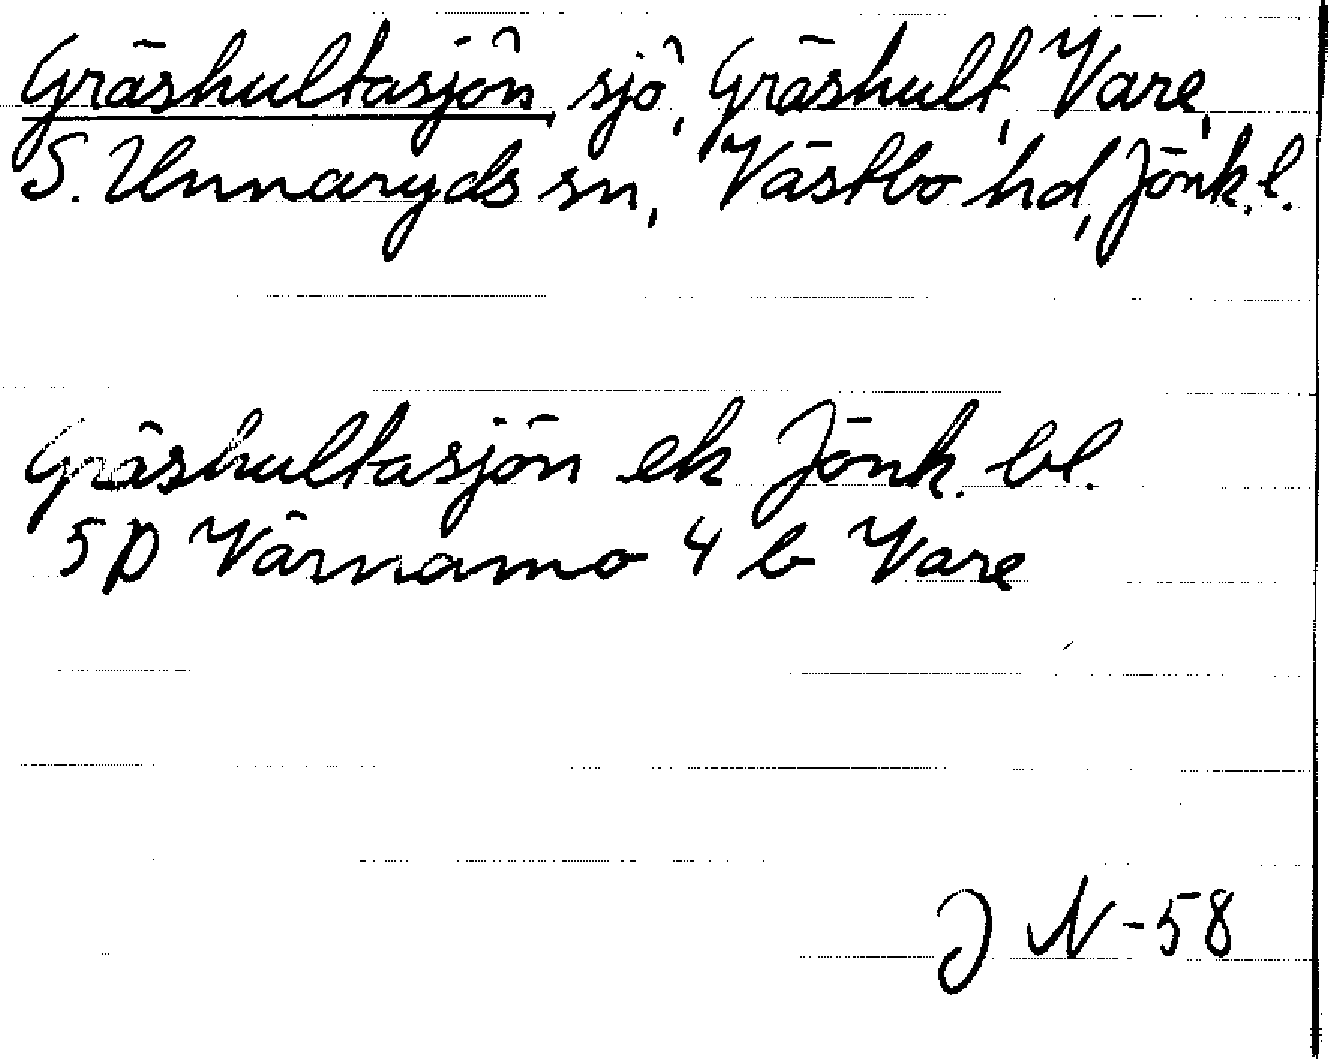 Gräshultasjön sjö, Gräshult, Vare,
S. Unnaryds sn, Västbo hd, Jönk. l.
Gräshultasjön ek Jönk. bl.
5D Värnamo 4 b Vare
J N-58